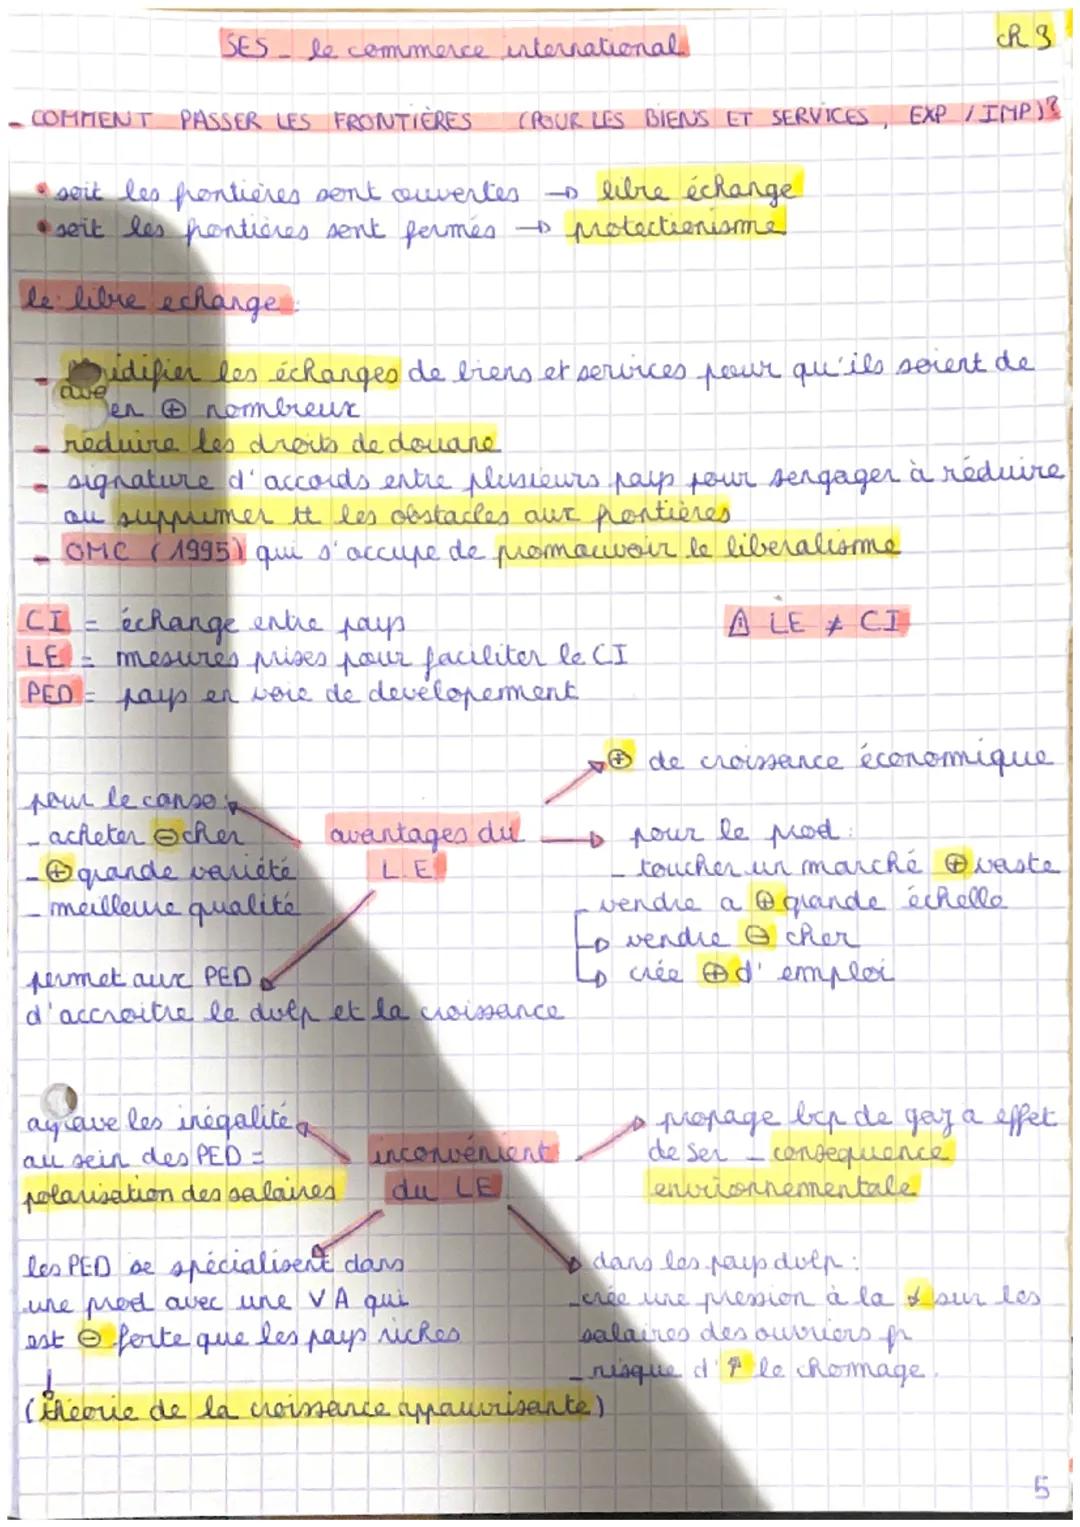 SES - le commerce international
ch 3
- COMMENT PASSER LES FRONTIÈRES (POUR LES BIENS ET SERVICES, EXP / IMP)?
• soit les frontières sont ouvertes → libre échange
• soit les frontières sont fermés → protectionisme
le libre echange:
- idifier les échanges de biens et services pour qu'ils soient de
en ⊕ nombreux
- reduire les droits de douane
- signature d'accords entre plusieurs pays pour sengager à réduire
ou supprimer tt les obstacles aux frontières
- OMC (1995) qui s'occupe de promouvoir le liberalisme
CI = échange entre pays
⚠ LE ≠ CI
LE = mesures prises pour faciliter le CI
PED = pays en voie de developement
⊕ de croissance économique
pour le conso:
- acheter ⊖ cher
- ⊕ grande variété
- meilleure qualité
avantages du
L.E
pour le prod:
- toucher un marché ⊕ vaste
- vendre a ⊕ grande échelle
↳ vendre ⊖ cher
↳ crée ⊕ d'emploi
permet aux PED
d'accroitre le dvlp et la croissance
agrave les inégalité
au sein des PED =
polarisation des salaires
inconvénient
du LE
propage bcp de gaz a effet
de ser - consequence
envrionnementale
les PED se spécialisent dans
une prod avec une VA qui
est ⊖ forte que les pays riches
↓
(théorie de la croissance appauvrisante)
dans les pays dvlp:
- crée une pression à la ↓ sur les
salaires des ouvriers pr
- risque d' ↑ le chomage.
5